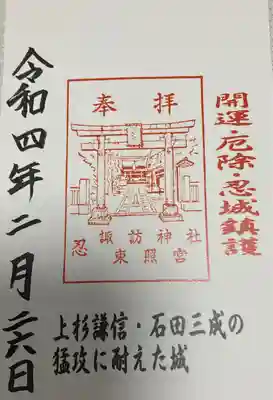 開運・厄除・忍城鎮護
奉拝
諏訪神社
忍
東照宮
上杉謙信・石田三成の
猛攻に耐えた城
令和四年二月二六日